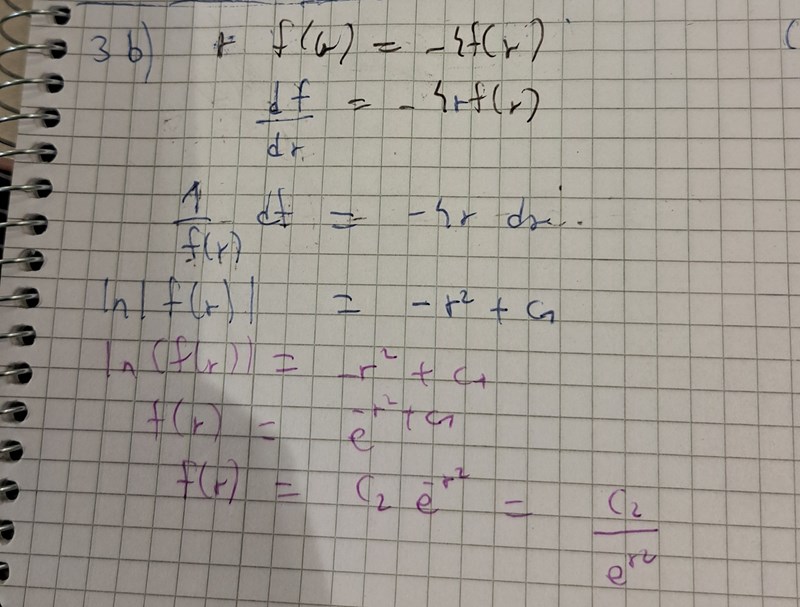 3 b) r f(r) = -4f(r)
df/dr = -4rf(r)
1/f(r) df = -4r dr
ln|f(r)| = -r² + C₁
ln(f(r)) = -r² + C₁
f(r) = e^(-r²+C₁)
f(r) = C₂ e^(-r²) = C₂/e^(r²)